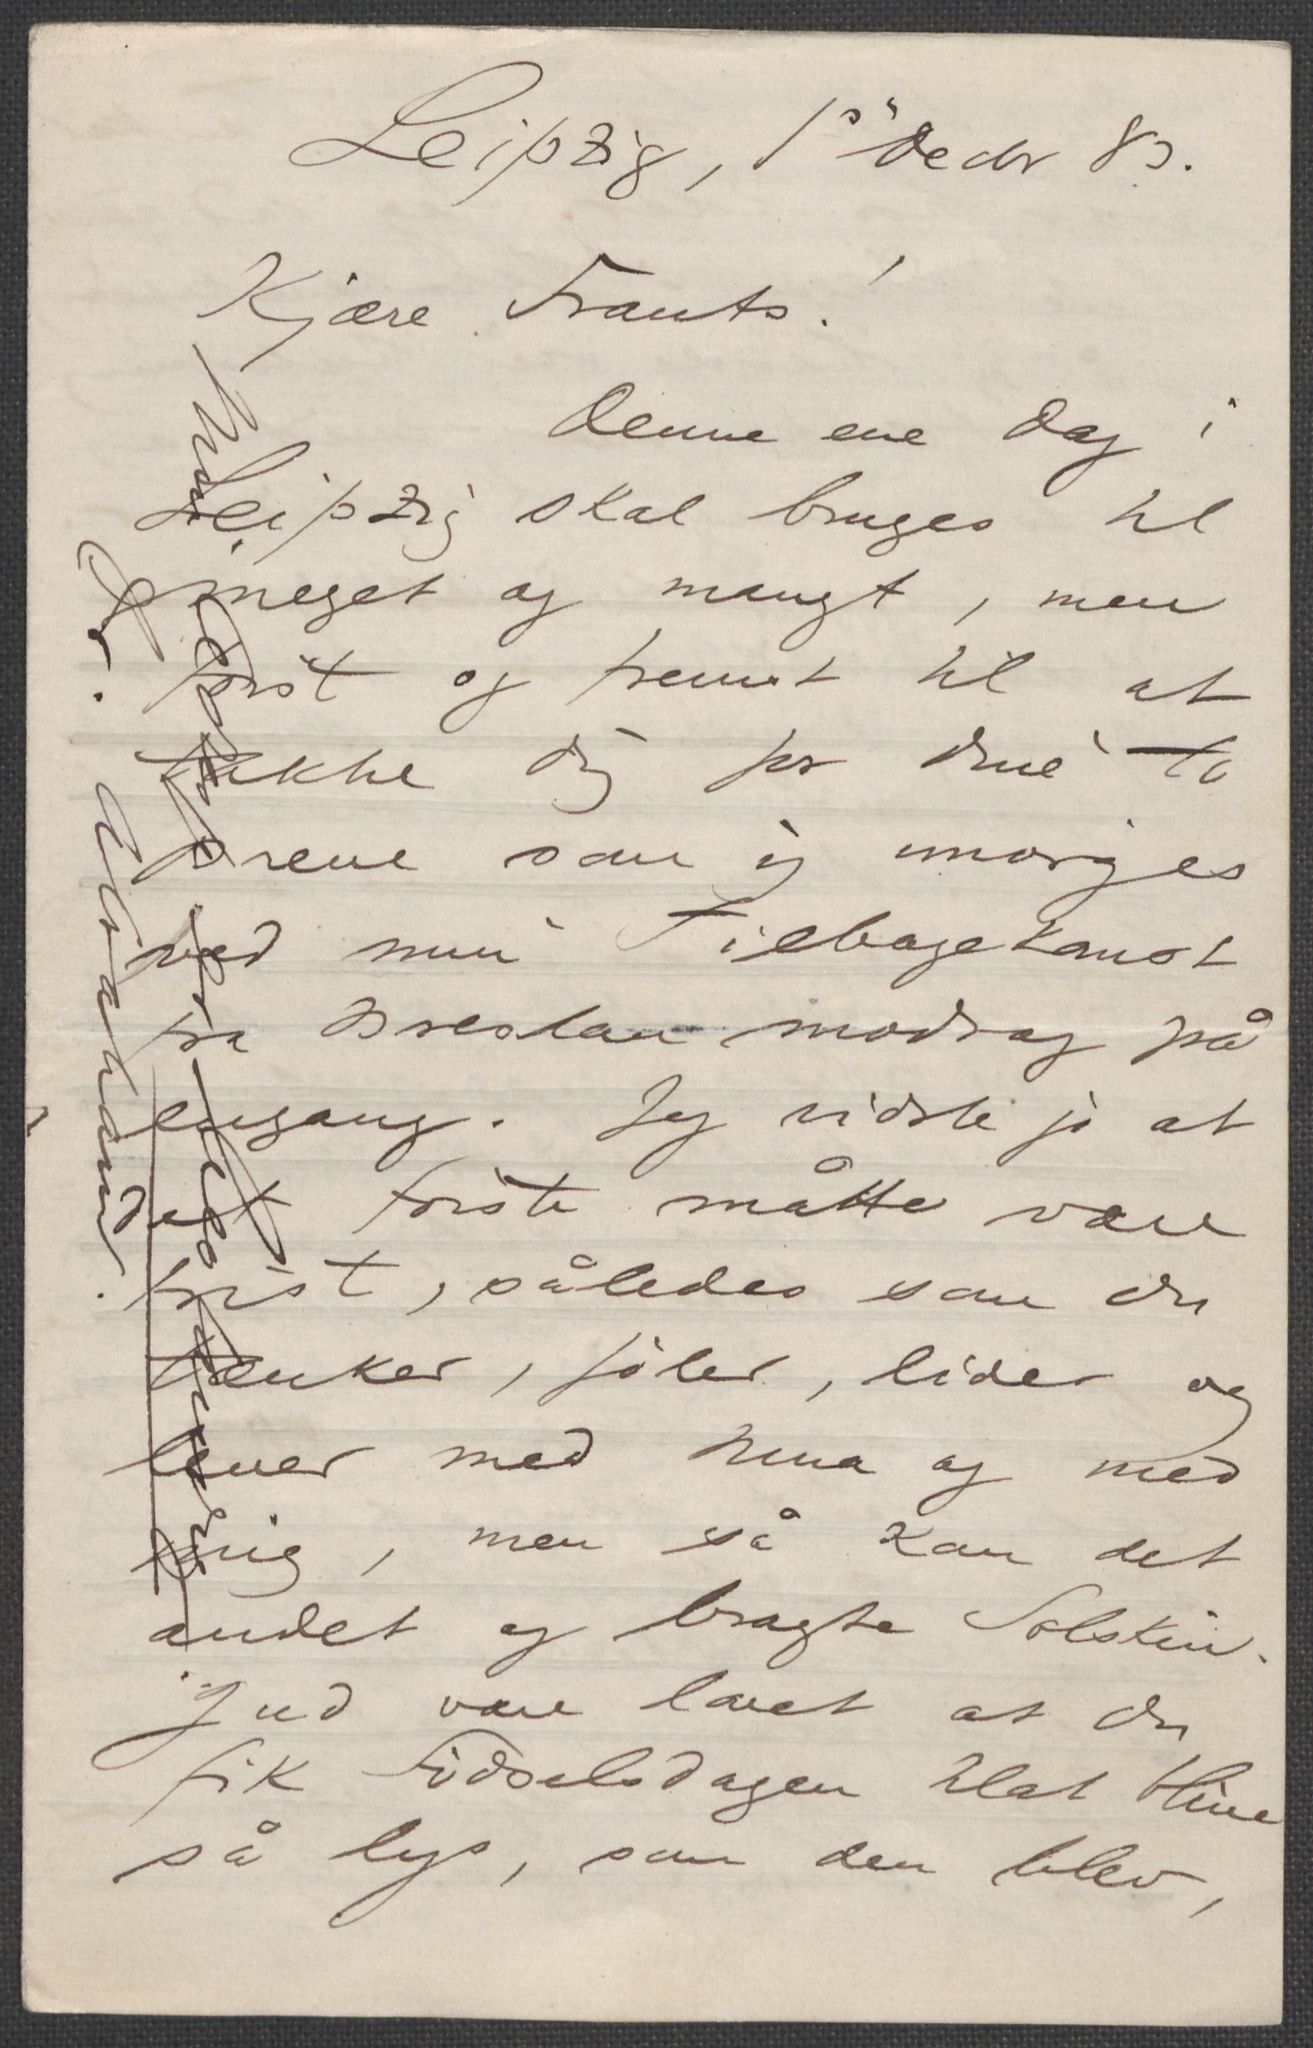 Leipzig, 1ste Decbr 83.
Kjære Frants!
Denne ene Dag i
Leipzig skal bruges til
meget og mangt, men
først og fremst til at
takke dig for dine to
Breve som jeg imorges
ved min Tilbagekomst
fra Breslau modtog på
engang. Jeg vidste jo at
det første måtte være
trist, således som du
tænker, føler, lider og
lever med Nina og med
mig, men så kom det
andet og bragte Solskin.
Gud være lovet at du
fik Fødselsdagen til at blive
så lys, som den blev,